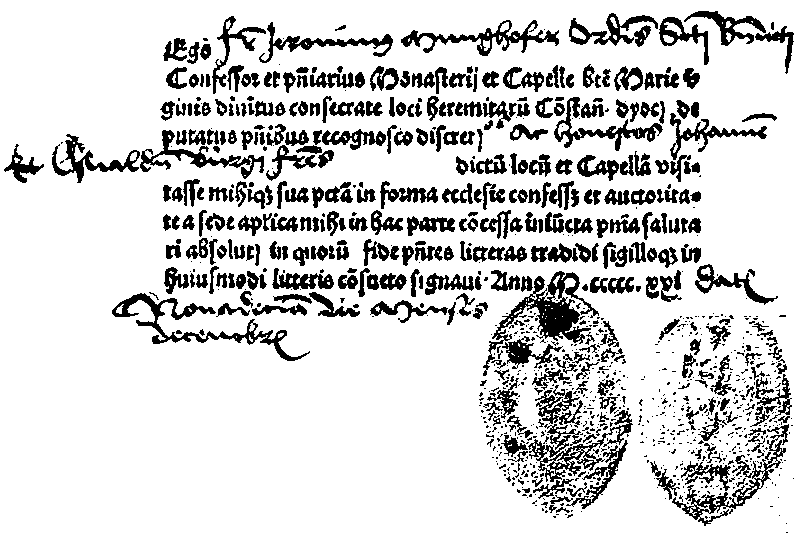 Ego fr̄ Jeronimus Munghofer Ordis̄ Scti Bn̄dicti
Confessor et pn̄iarius Monasterij et Capelle btē Marie v
ginis diuitus consecrate loci heremitarū Cōstan̄. dyoc̄ de
putatus pn̄ibus recognosco discret ac honestos Johannē
Et
fr̄es
dictū locū et Capellā visi-
tasse mihiqꝫ sua pctā in forma ecclesie confessꝫ et auctorita-
te a sede aplica mihi in hac parte cōcessa iniūcta pn̄ia saluta
ri absolutꝫ in quorū fide pn̄tes litteras tradidi sigilloqꝫ in
huiusmodi litteris cōsueto signaui. Anno M.ccccc.xxi Datꝫ
Die Mensis
decembrꝫ